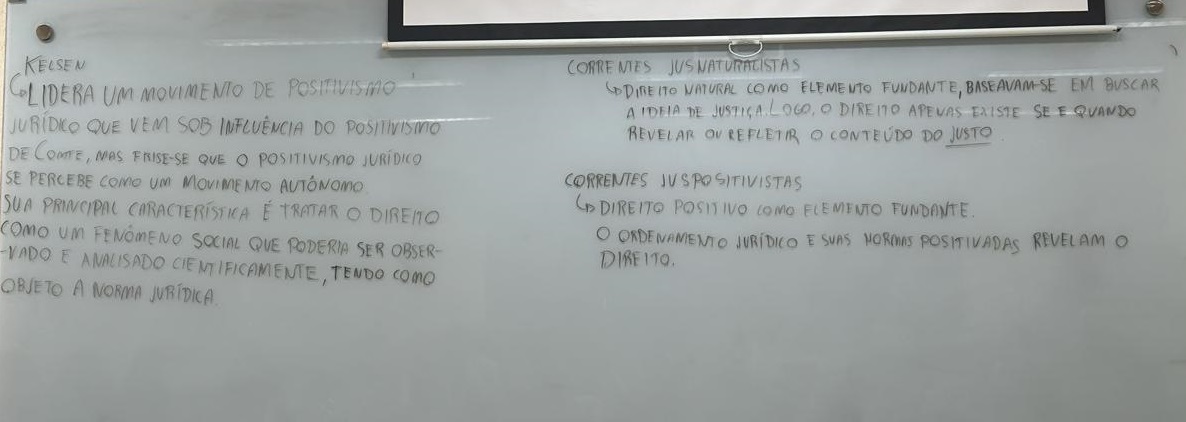 KELSEN
↳ LIDERA UM MOVIMENTO DE POSITIVISMO
JURÍDICO QUE VEM SOB INFLUÊNCIA DO POSITIVISMO
DE COMTE, MAS FRISE-SE QUE O POSITIVISMO JURÍDICO
SE PERCEBE COMO UM MOVIMENTO AUTÔNOMO.
SUA PRINCIPAL CARACTERÍSTICA É TRATAR O DIREITO
COMO UM FENÔMENO SOCIAL QUE PODERIA SER OBSER-
-VADO E ANALISADO CIENTIFICAMENTE, TENDO COMO
OBJETO A NORMA JURÍDICA.
CORRENTES JUSNATURALISTAS
↳ DIREITO NATURAL COMO ELEMENTO FUNDANTE, BASEAVAM-SE EM BUSCAR
A IDEIA DE JUSTIÇA. LOGO, O DIREITO APENAS EXISTE SE E QUANDO
REVELAR OU REFLETIR O CONTEÚDO DO JUSTO.
CORRENTES JUSPOSITIVISTAS
↳ DIREITO POSITIVO COMO ELEMENTO FUNDANTE.
O ORDENAMENTO JURÍDICO E SUAS NORMAS POSITIVADAS REVELAM O
DIREITO.